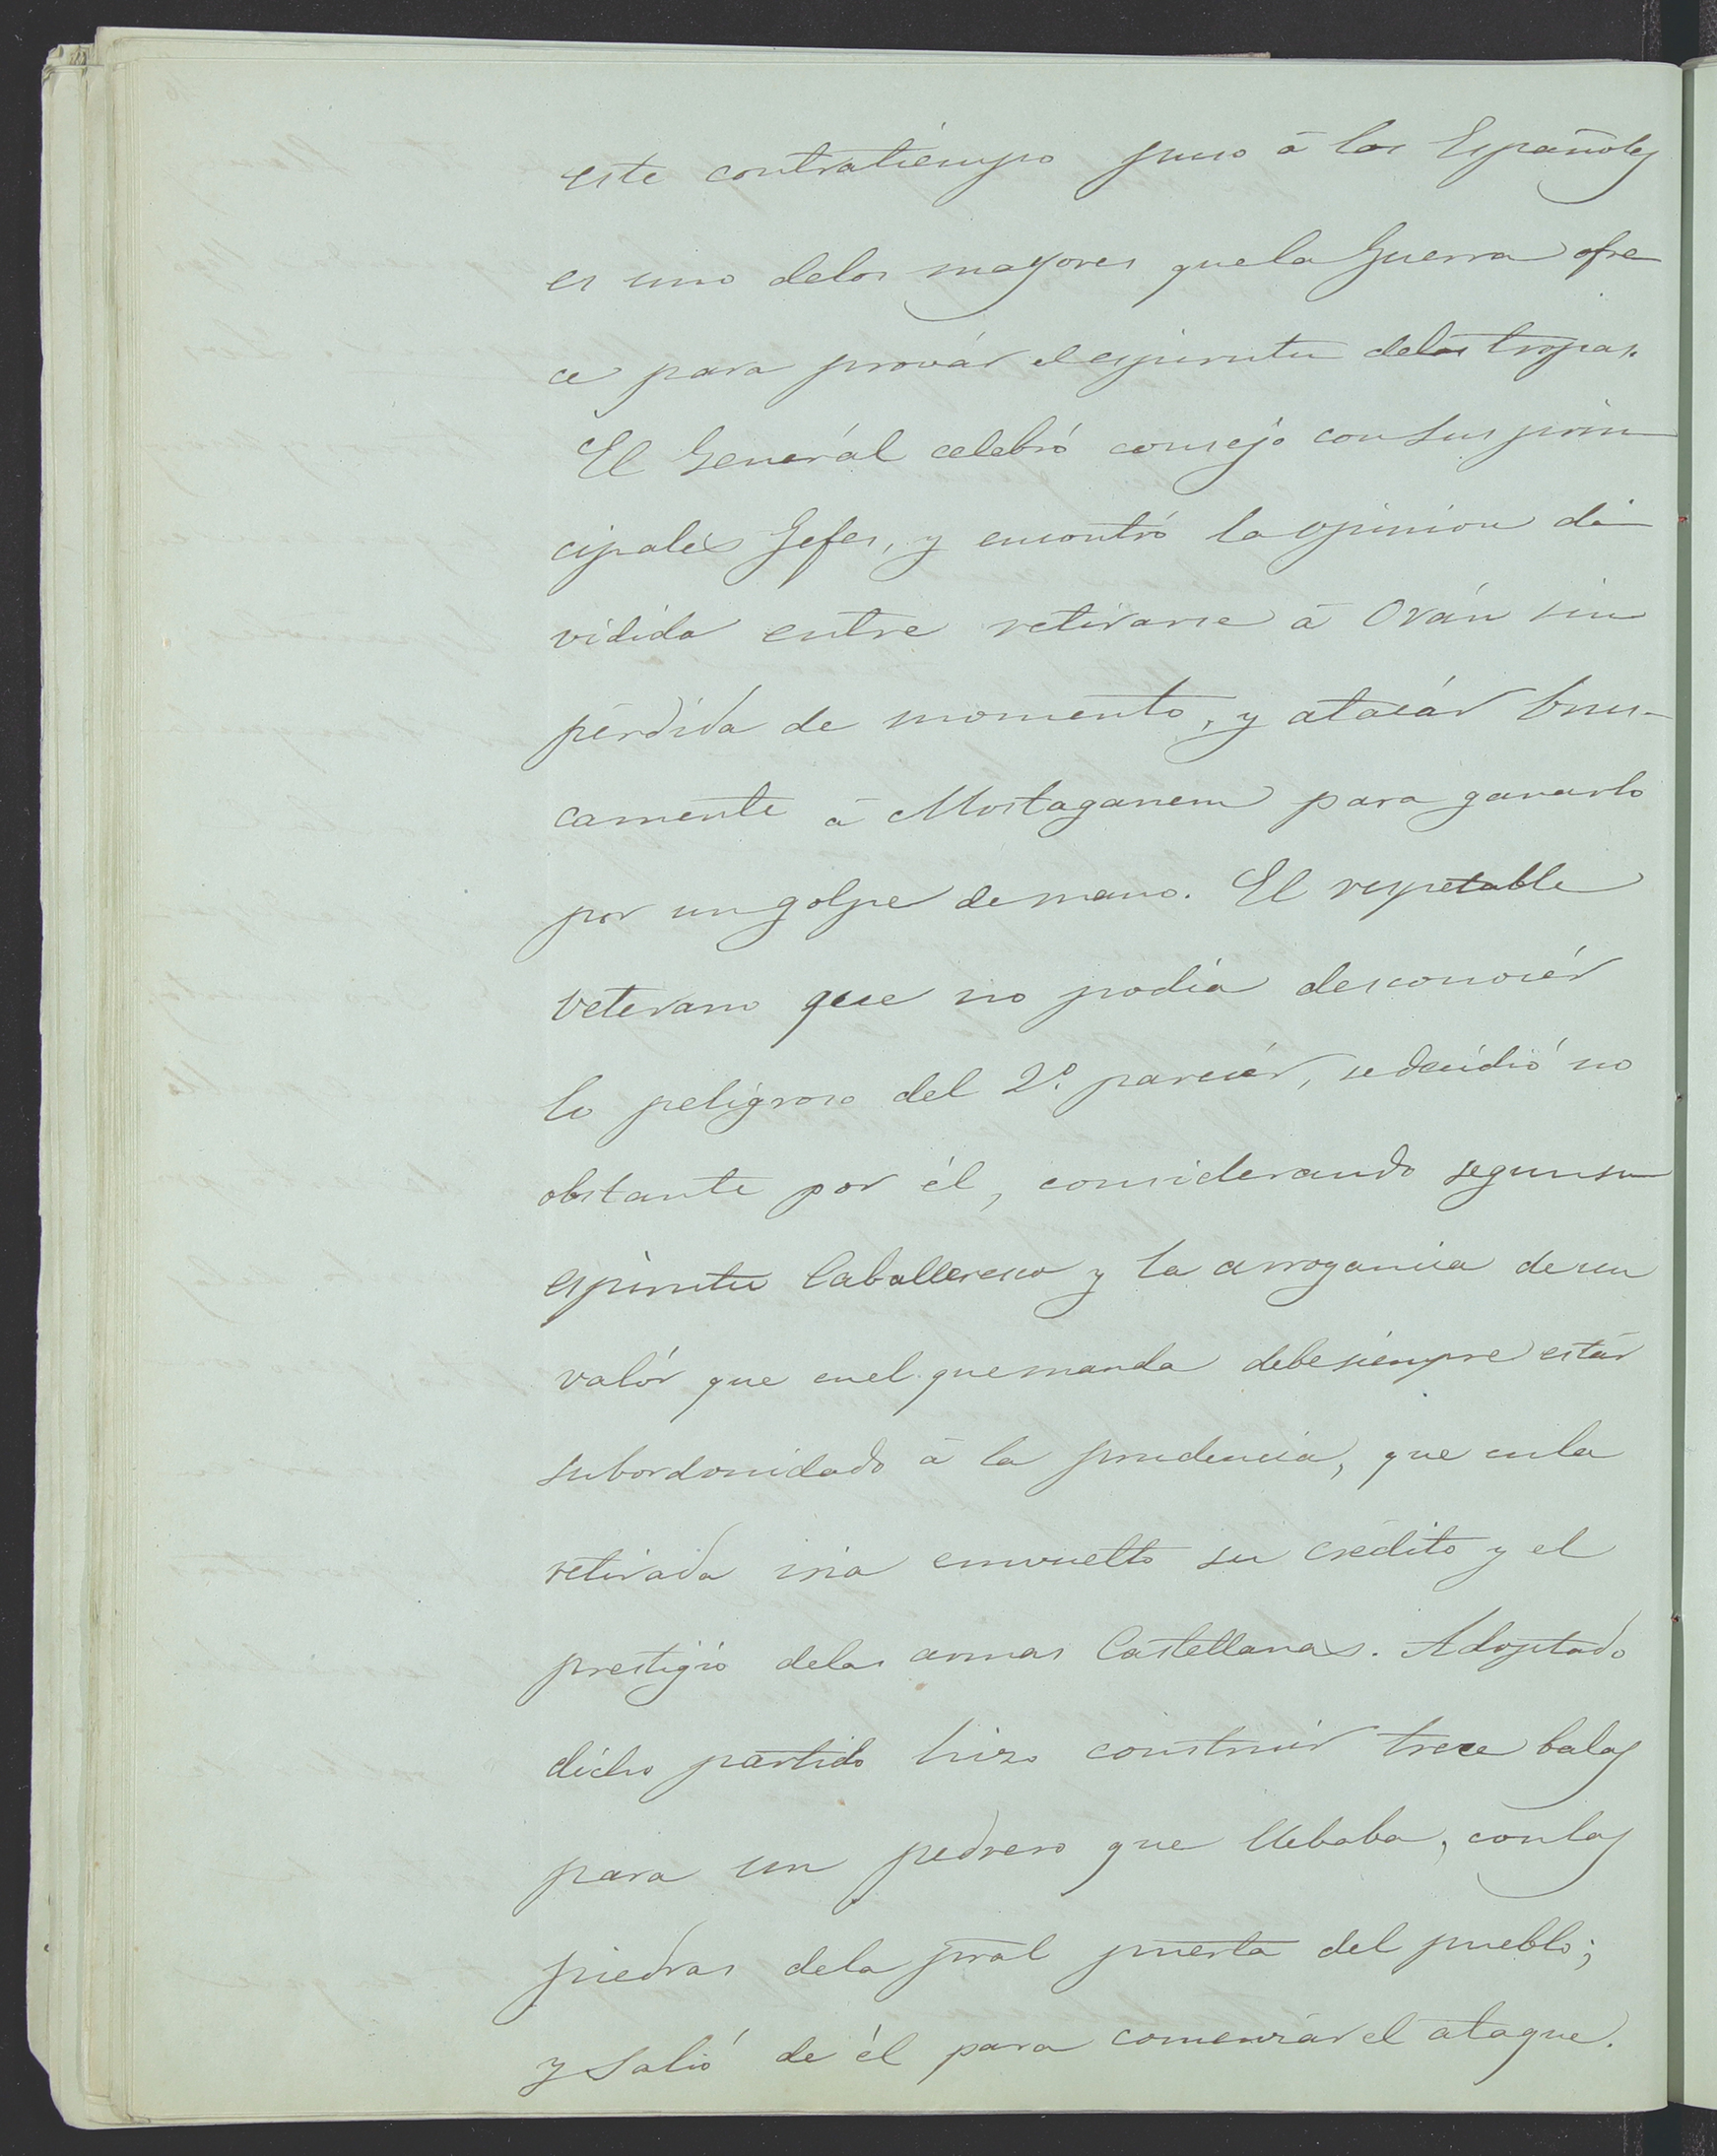 este contratiempo puso á los Españoles
es uno delos mayores que la Guerra ofre
ce para provár el espiritu delas tropas.
El Generál celebró consejo con sus prin
cipales Gefes, y encontró la opinion di
vidida entre retirarse á Orán sin
pérdida de momento, y atacár brus-
camente á Mostaganem para ganarlo
por un golpe de mano. El respetable
veterano que no podía desconocér
lo peligroso del 2º parecér, se decidió no
obstante por él, considerando segun su
espiritu Caballeresco y la arrogancia de su
valór que en el que manda debe siempre estár
subordonidado á la prudencia, que en la
retirada iria envuelto su crédito y el
prestigio delas armas Castellanas. Adoptado
dicho partido hizo construir trece balas
para un pedrero que llebaba, con las
piedras dela pral puerta del pueblo;
y salió de él para comenzár el ataque.